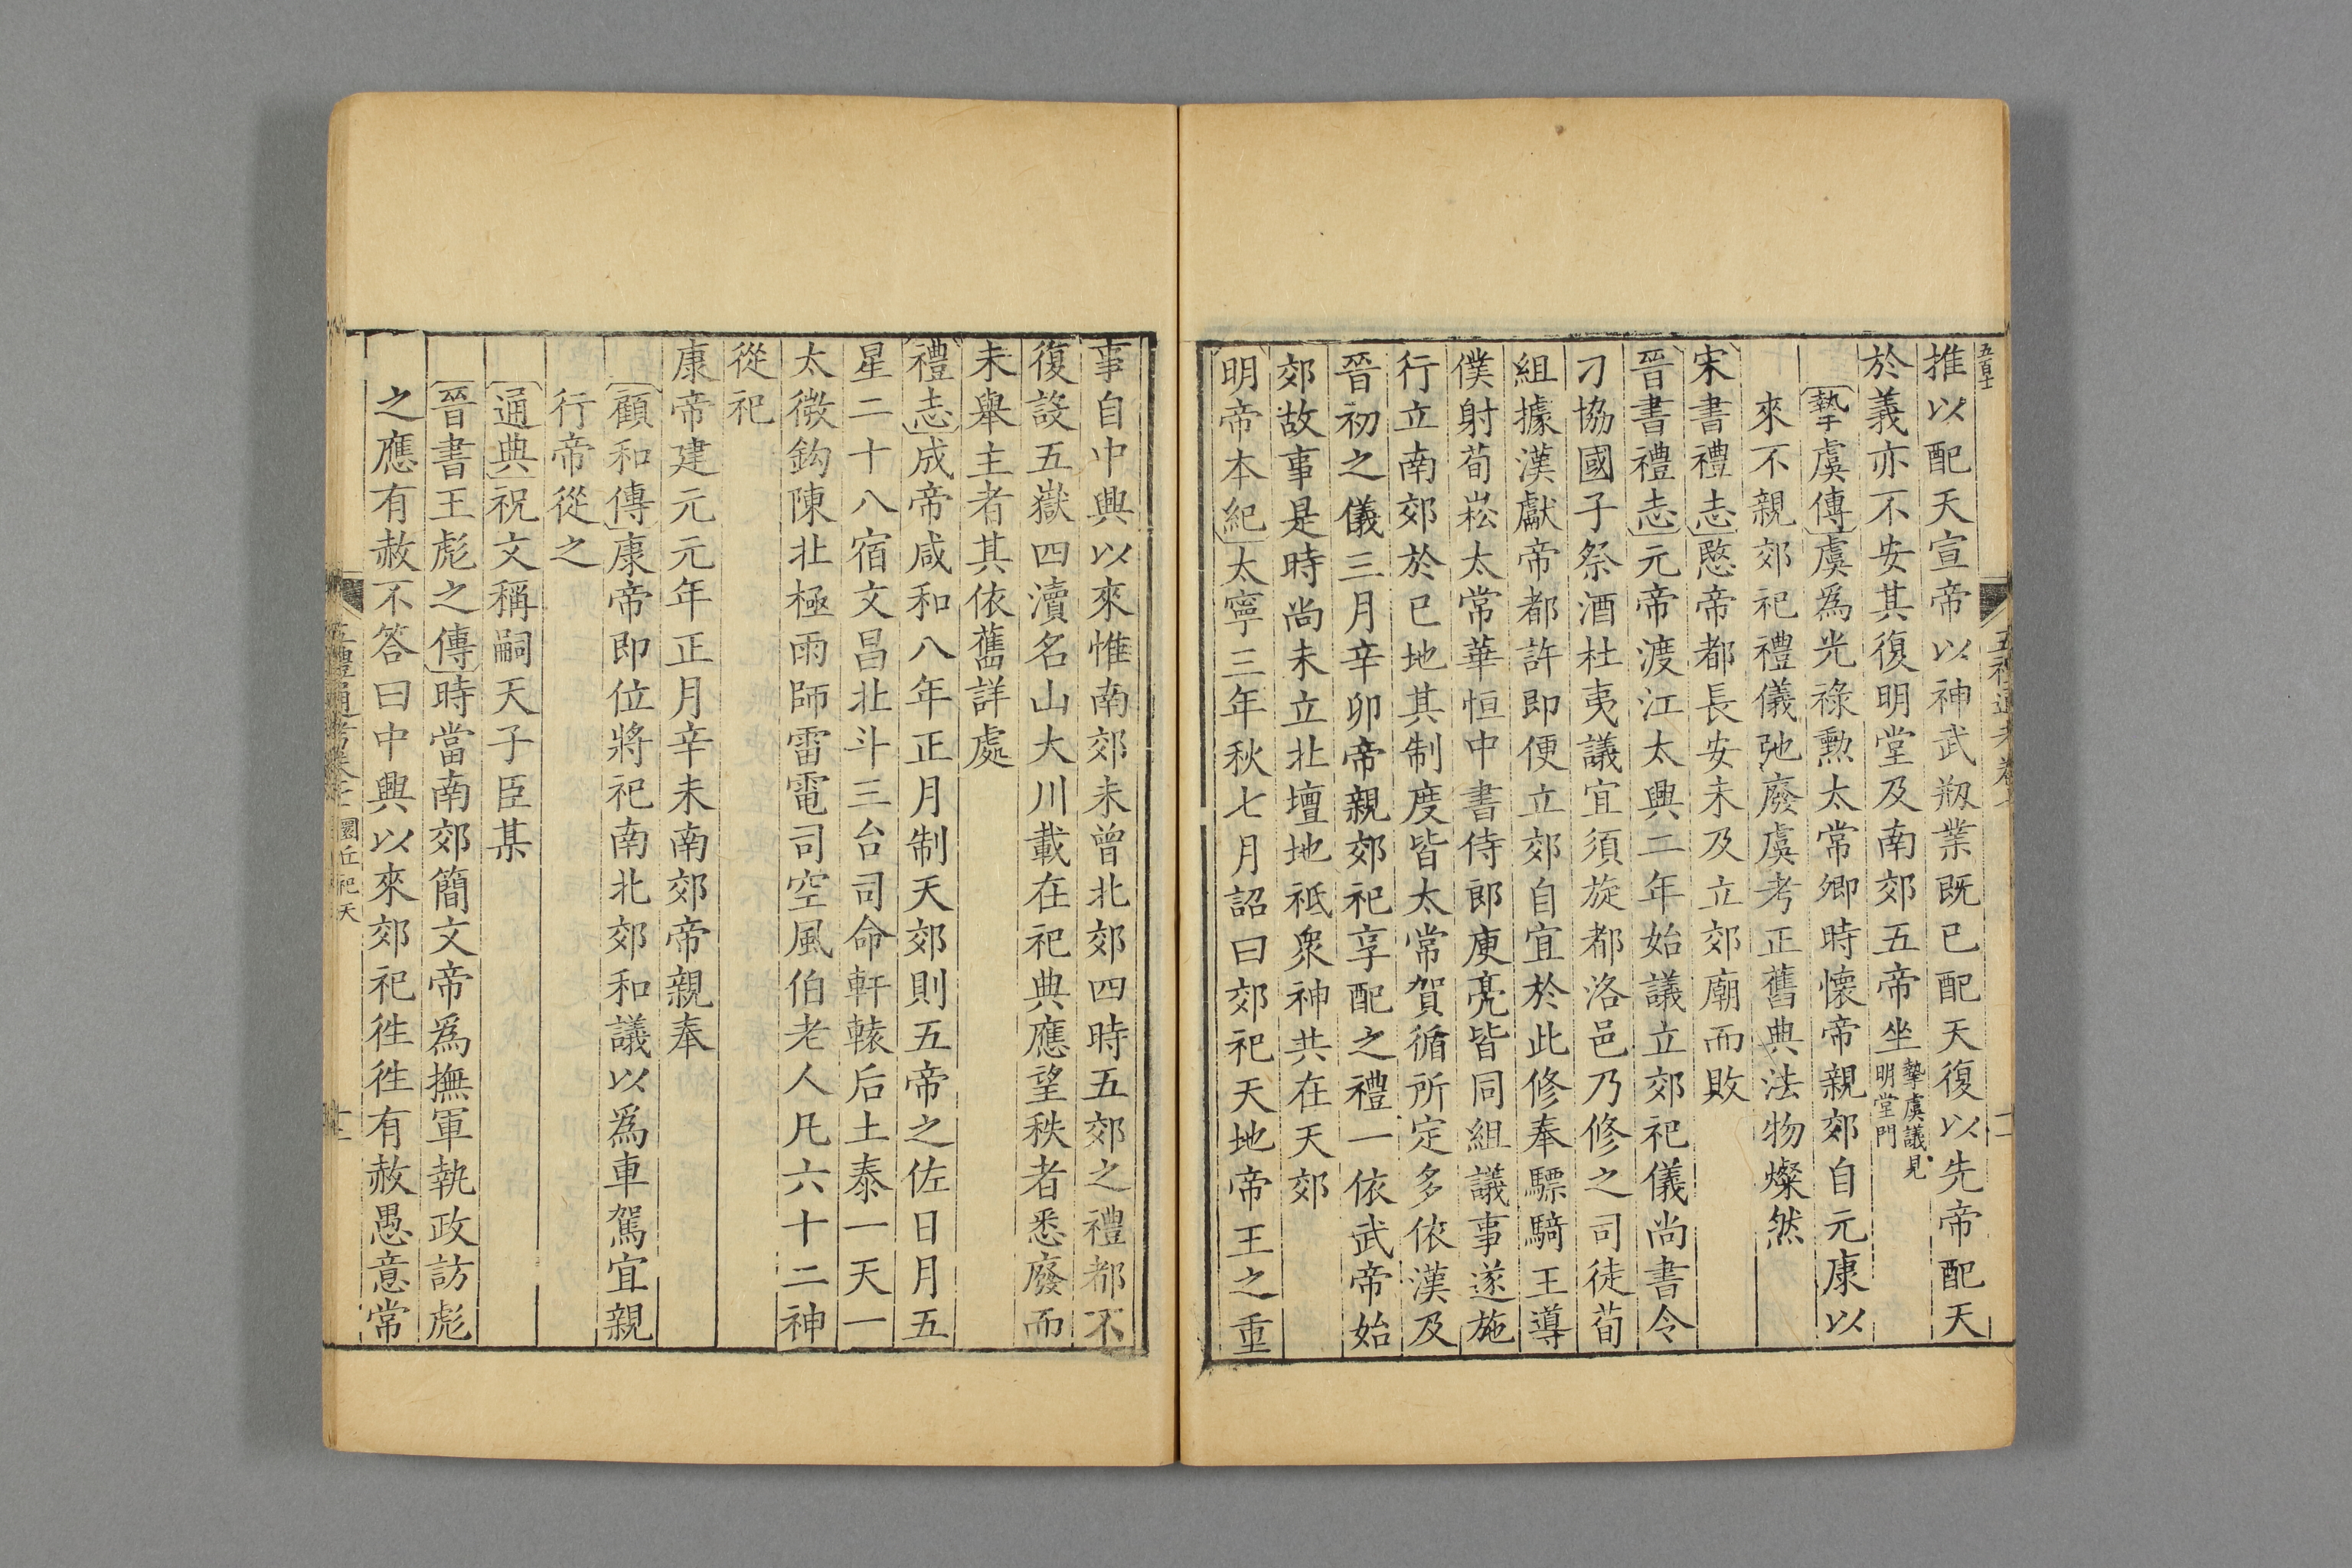 推以配天宣帝以神武剏業既已配天復以先帝配天
於義亦不安其復明堂及南郊五帝坐摯虞議見明堂門
摯虞傳虞爲光祿勲太常卿時懷帝親郊自元康以
來不親郊祀禮儀弛廢虞考正舊典法物燦然
宋書禮志愍帝都長安未及立郊廟而敗
晉書禮志元帝渡江太興二年始議立郊祀儀尚書令
刁協國子祭酒杜夷議宜須旋都洛邑乃修之司徒荀
組據漢獻帝都許即便立郊自宜於此修奉驃騎王導
僕射荀崧太常華恒中書侍郎庾亮皆同組議事遂施
行立南郊於巳地其制度皆太常賀循所定多依漢及
晉初之儀三月辛卯帝親郊祀享配之禮一依武帝始
郊故事是時尚未立北壇地祇衆神共在天郊
明帝本紀太寧三年秋七月詔曰郊祀天地帝王之重
事自中興以來惟南郊未曾北郊四時五郊之禮都不
復設五嶽四瀆名山大川載在祀典應望秩者悉廢而
未舉主者其依舊詳處
禮志成帝咸和八年正月制天郊則五帝之佐日月五
星二十八宿文昌北斗三台司命軒轅后土泰一天一
太微鈎陳北極雨師雷電司空風伯老人凡六十二神
從祀
康帝建元元年正月辛未南郊帝親奉
顧和傳康帝即位將祀南北郊和議以爲車駕宜親
行帝從之
通典祝文稱嗣天子臣某
晉書王彪之傳時當南郊簡文帝爲撫軍執政訪彪
之應有赦不答曰中興以來郊祀徃徃有赦愚意常
五禮通考卷七 圜丘祀天